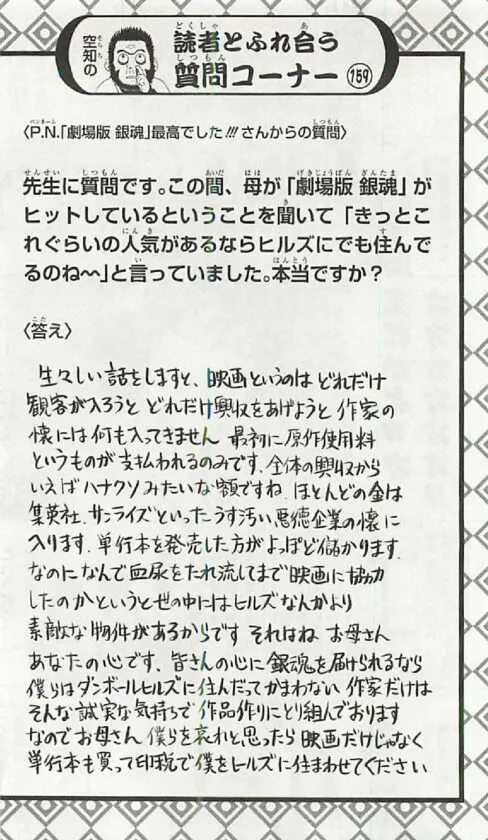 空知の
読者とふれ合う
質問コーナー 159
〈P.N.「劇場版 銀魂」最高でした!!! さんからの質問〉
先生に質問です。この間、母が「劇場版 銀魂」が
ヒットしているということを聞いて「きっとこ
れぐらいの人気があるならヒルズにでも住んで
るのね〜〜」と言っていました。本当ですか？
〈答え〉
生々しい話をしますと、映画というのは どれだけ
観客が入ろうと どれだけ興収をあげようと 作家の
懐には何も入ってきません 最初に原作使用料
というものが支払われるのみです、全体の興収から
いえばハナクソみたいな額ですね. ほとんどの金は
集英社、サンライズといったうす汚い悪徳企業の懐に
入ります. 単行本を発売した方がよっぽど儲かります
なのになんで血尿をたれ流してまで映画に協力
したのかというと世の中にはヒルズなんかより
素敵な物件があるからです それはね お母さん
あなたの心です、皆さんの心に銀魂を届けられるなら
僕らはダンボールヒルズに住んだってかまわない 作家だけは
そんな誠実な気持ちで作品作りにとり組んでおります
なのでお母さん 僕らを哀れと思ったら映画だけじゃなく
単行本も買って印税で僕をヒルズに住まわせてください